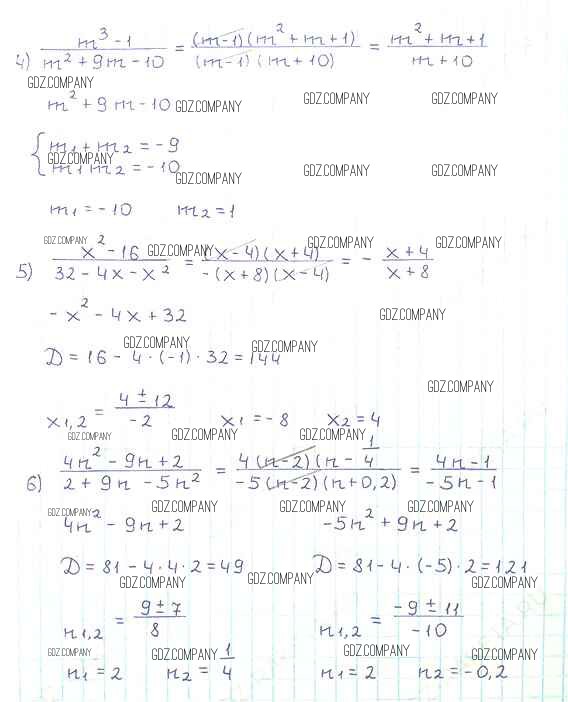 4) (m³ - 1)/(m² + 9m - 10) = ((m-1)(m² + m + 1))/((m-1)(m+10)) = (m² + m + 1)/(m + 10)
GDZ.COMPANY
m² + 9m - 10 GDZ.COMPANY GDZ.COMPANY GDZ.COMPANY
{ m₁ + m₂ = -9
GDZ.COMPANY
m₁ m₂ = -10 GDZ.COMPANY GDZ.COMPANY GDZ.COMPANY
m₁ = -10 m₂ = 1
GDZ.COMPANY GDZ.COMPANY GDZ.COMPANY GDZ.COMPANY
5) (x² - 16)/(32 - 4x - x²) = ((x-4)(x+4))/(-(x+8)(x-4)) = - (x+4)/(x+8)
-x² - 4x + 32 GDZ.COMPANY
GDZ.COMPANY GDZ.COMPANY
D = 16 - 4·(-1)·32 = 144
GDZ.COMPANY
x₁,₂ = (4 ± 12)/(-2) x₁ = -8 x₂ = 4
GDZ.COMPANY GDZ.COMPANY GDZ.COMPANY
6) (4n² - 9n + 2)/(2 + 9n - 5n²) = (4(n-2)(n - 1/4))/(-5(n-2)(n+0,2)) = (4n-1)/(-5n-1)
GDZ.COMPANY GDZ.COMPANY GDZ.COMPANY GDZ.COMPANY
4n² - 9n + 2 -5n² + 9n + 2
D = 81 - 4·4·2 = 49 D = 81 - 4·(-5)·2 = 121
GDZ.COMPANY GDZ.COMPANY GDZ.COMPANY
n₁,₂ = (9 ± 7)/8 n₁,₂ = (-9 ± 11)/(-10)
GDZ.COMPANY GDZ.COMPANY GDZ.COMPANY GDZ.COMPANY
n₁ = 2 n₂ = 1/4 n₁ = 2 n₂ = -0,2